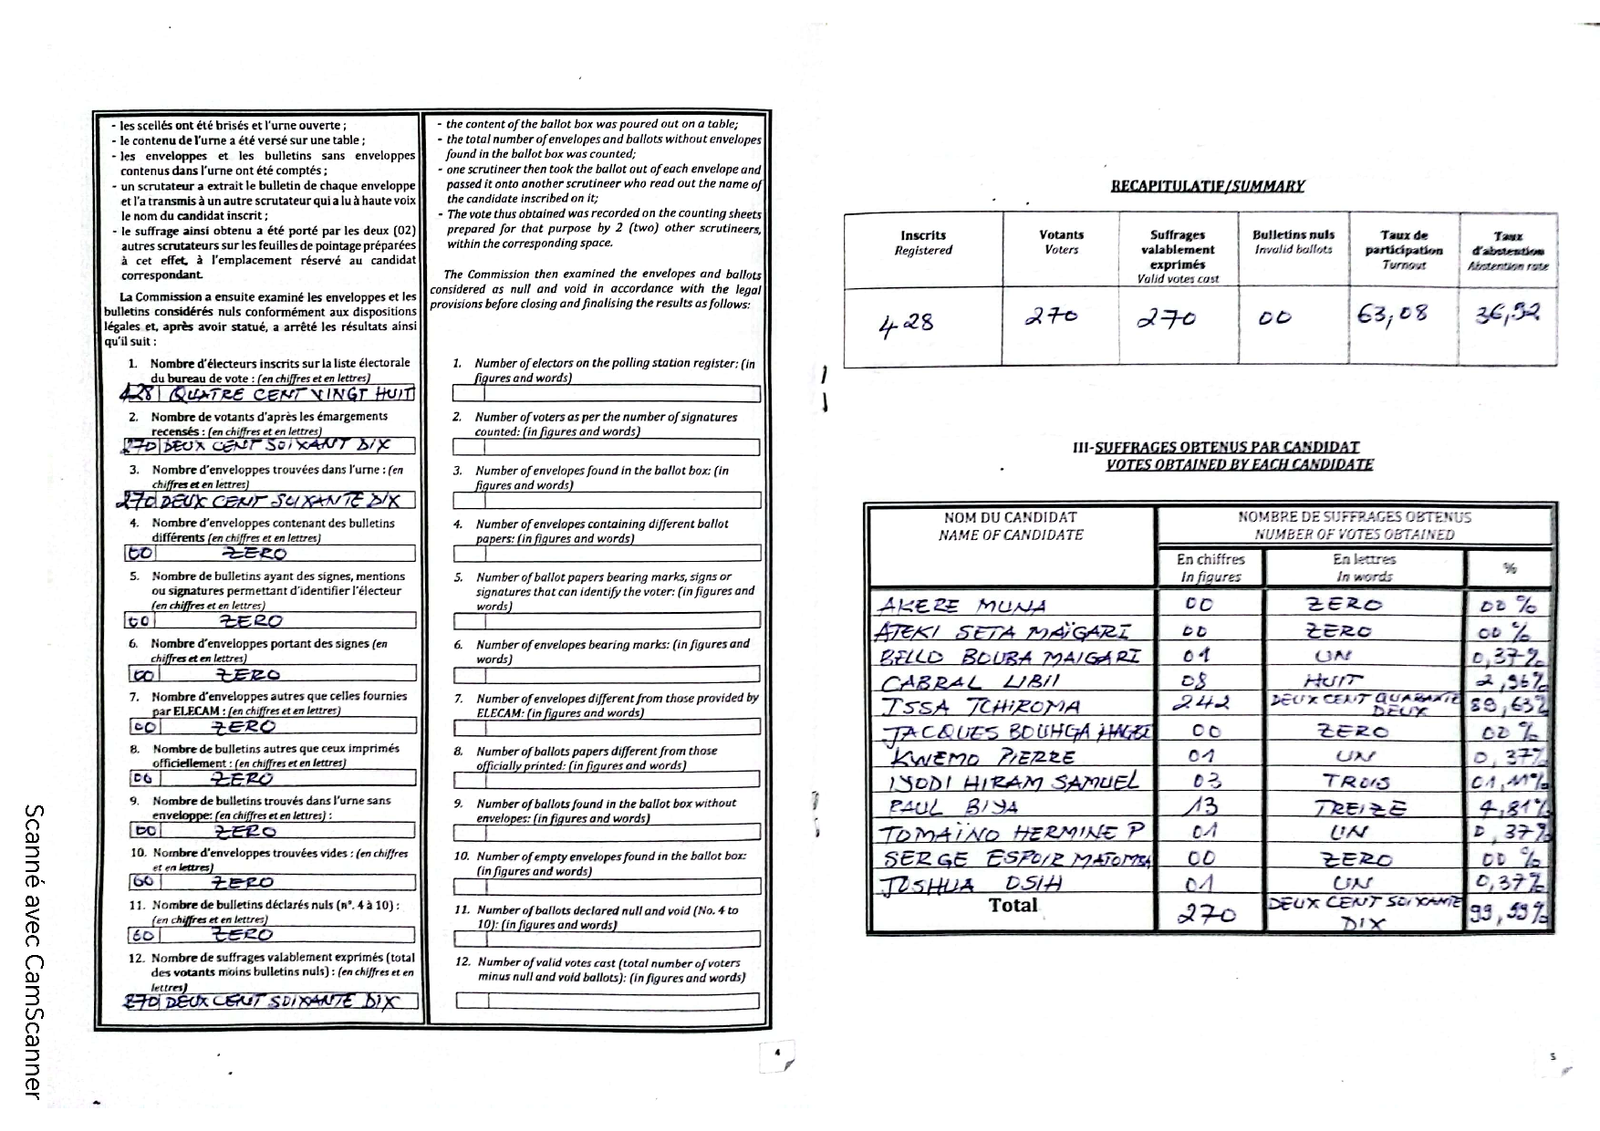 - les scellés ont été brisés et l'urne ouverte ;
- le contenu de l'urne a été versé sur une table ;
- les enveloppes et les bulletins sans enveloppes
contenus dans l'urne ont été comptés ;
- un scrutateur a extrait le bulletin de chaque enveloppe
et l'a transmis à un autre scrutateur qui a lu à haute voix
le nom du candidat inscrit ;
- le suffrage ainsi obtenu a été porté par les deux (02)
autres scrutateurs sur les feuilles de pointage préparées
à cet effet, à l'emplacement réservé au candidat
correspondant.
La Commission a ensuite examiné les enveloppes et les
bulletins considérés nuls conformément aux dispositions
légales et, après avoir statué, a arrêté les résultats ainsi
qu'il suit :
1. Nombre d'électeurs inscrits sur la liste électorale
du bureau de vote : (en chiffres et en lettres)
428 QUATRE CENT VINGT HUIT
2. Nombre de votants d'après les émargements
recensés : (en chiffres et en lettres)
270 DEUX CENT SOIXANT DIX
3. Nombre d'enveloppes trouvées dans l'urne : (en
chiffres et en lettres)
270 DEUX CENT SOIXANTE DIX
4. Nombre d'enveloppes contenant des bulletins
différents (en chiffres et en lettres)
00 ZERO
5. Nombre de bulletins ayant des signes, mentions
ou signatures permettant d'identifier l'électeur
(en chiffres et en lettres)
00 ZERO
6. Nombre d'enveloppes portant des signes (en
chiffres et en lettres)
00 ZERO
7. Nombre d'enveloppes autres que celles fournies
par ELECAM : (en chiffres et en lettres)
00 ZERO
8. Nombre de bulletins autres que ceux imprimés
officiellement : (en chiffres et en lettres)
00 ZERO
9. Nombre de bulletins trouvés dans l'urne sans
enveloppe: (en chiffres et en lettres) :
00 ZERO
10. Nombre d'enveloppes trouvées vides : (en chiffres
et en lettres)
00 ZERO
11. Nombre de bulletins déclarés nuls (n°. 4 à 10) :
(en chiffres et en lettres)
00 ZERO
12. Nombre de suffrages valablement exprimés (total
des votants moins bulletins nuls) : (en chiffres et en
lettres)
270 DEUX CENT SOIXANTE DIX
- the content of the ballot box was poured out on a table;
- the total number of envelopes and ballots without envelopes
found in the ballot box was counted;
- one scrutineer then took the ballot out of each envelope and
passed it onto another scrutineer who read out the name of
the candidate inscribed on it;
- The vote thus obtained was recorded on the counting sheets
prepared for that purpose by 2 (two) other scrutineers,
within the corresponding space.
The Commission then examined the envelopes and ballots
considered as null and void in accordance with the legal
provisions before closing and finalising the results as follows:
1. Number of electors on the polling station register: (in
figures and words)
2. Number of voters as per the number of signatures
counted: (in figures and words)
3. Number of envelopes found in the ballot box: (in
figures and words)
4. Number of envelopes containing different ballot
papers: (in figures and words)
5. Number of ballot papers bearing marks, signs or
signatures that can identify the voter: (in figures and
words)
6. Number of envelopes bearing marks: (in figures and
words)
7. Number of envelopes different from those provided by
ELECAM: (in figures and words)
8. Number of ballots papers different from those
officially printed: (in figures and words)
9. Number of ballots found in the ballot box without
envelopes: (in figures and words)
10. Number of empty envelopes found in the ballot box:
(in figures and words)
11. Number of ballots declared null and void (No. 4 to
10): (in figures and words)
12. Number of valid votes cast (total number of voters
minus null and void ballots): (in figures and words)
4
Scanné avec CamScanner
RECAPITULATIF/SUMMARY
Inscrits Registered Votants Voters Suffrages valablement exprimés Valid votes cast Bulletins nuls Invalid ballots Taux de participation Turnout Taux d'abstention Abstention rate
428 270 270 00 63,08 36,92
III-SUFFRAGES OBTENUS PAR CANDIDAT
VOTES OBTAINED BY EACH CANDIDATE
NOM DU CANDIDAT NOMBRE DE SUFFRAGES OBTENUS
NAME OF CANDIDATE NUMBER OF VOTES OBTAINED
En chiffres En lettres %
In figures In words
AKERE MUNA 00 ZERO 00 %
ATEKI SETA MAÏGARI 00 ZERO 00 %
BELLO BOUBA MAIGARI 01 UN 0,37%
CABRAL LIBII 08 HUIT 2,96%
ISSA TCHIROMA 242 DEUX CENT QUARANTE DEUX 89,63%
JACQUES BOUHGA 00 ZERO 00 %
KWEMO PIERRE 01 UN 0,37%
IYODI HIRAM SAMUEL 03 TROIS 01,11%
PAUL BIYA 13 TREIZE 4,81%
TOMAÏNO HERMINE P 01 UN 0,37%
SERGE ESPOIR MATOMBA 00 ZERO 00 %
JOSHUA OSIH 01 UN 0,37%
Total 270 DEUX CENT SOIXANTE DIX 99,99%
5